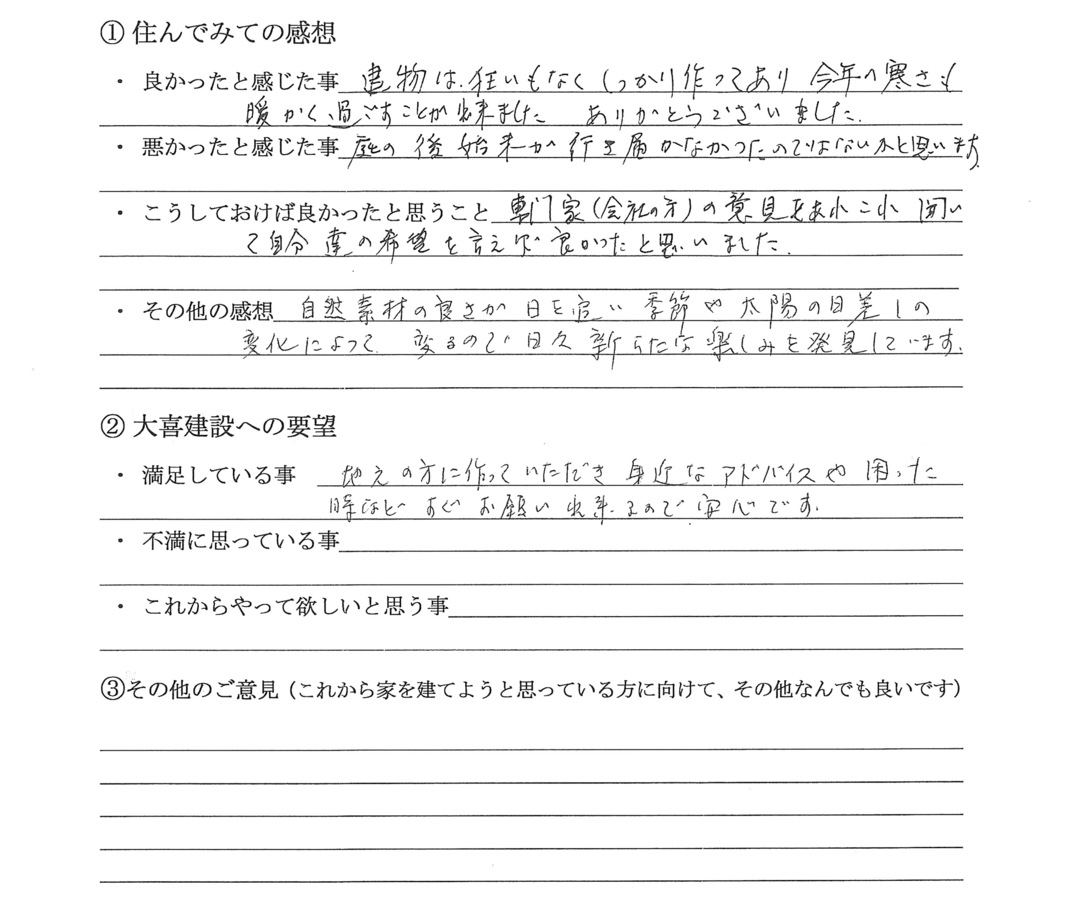 ① 住んでみての感想
・ 良かったと感じた事 建物は、狂いもなくしっかり作ってあり 今年の寒さも
暖かく過ごすことが出来ました ありがとうございました.
・ 悪かったと感じた事 庭の後始末が行き届かなかったのではないかと思います
・ こうしておけば良かったと思うこと 専門家(会社の方)の意見をあれこれ 聞い
て自分達の希望を言えば良かったと思いました.
・ その他の感想 自然素材の良さが 日を追い 季節や太陽の日差しの
変化によって 変るので 日々 新らたな楽しみを発見しています.
② 大喜建設への要望
・ 満足している事 地元の方に作っていただき 身近なアドバイスや 困った
時など すぐ お願い出来るので 安心です.
・ 不満に思っている事
・ これからやって欲しいと思う事
③その他のご意見（これから家を建てようと思っている方に向けて、その他なんでも良いです）